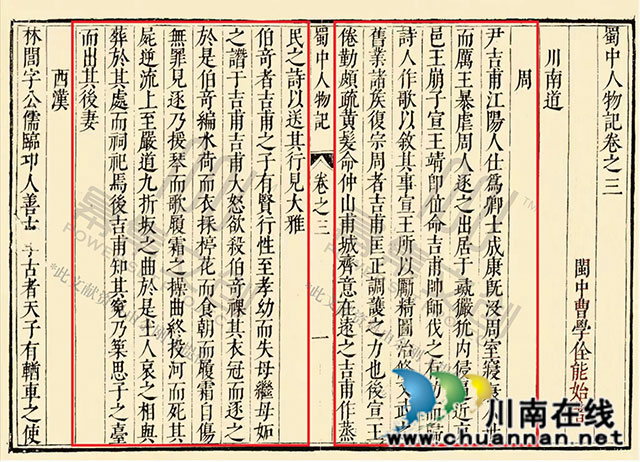 蜀中人物記卷之三
閩中曹學佺能始
川南道
周
尹吉甫江陽人仕爲卿士成康旣没周室寖
而厲王暴虐周人逐之出居于彘玁狁内侵逼近
邑王崩子宣王靖即位命吉甫帥師伐之有功而歸
詩人作歌以敘其事宣王所以勵精圖治修文武
舊業諸族復宗周者吉甫匡正調護之力也後宣王
倦勤頗疏黄髮命仲山甫城齊意在遠之吉甫作蒸
蜀中人物記 卷之三 一
民之詩以送其行見大雅
伯奇者吉甫之子有賢行性至孝幼而失母繼母妬
之譖于吉甫吉甫大怒欲殺伯奇祼其衣冠而逐之
於是伯奇編水荷而衣採楟花而食朝而履霜自傷
無罪見逐乃援琴而歌履霜之操曲終投河而死其
屍逆流上至嚴道九折坂之曲於是土人哀之相與
葬於其處而祠祀焉後吉甫知其寃乃築思子之臺
而出其後妻
西漢
林閭字公儒臨邛人善古 古者天子有輶車之使
川南在线
www.chuannan.net